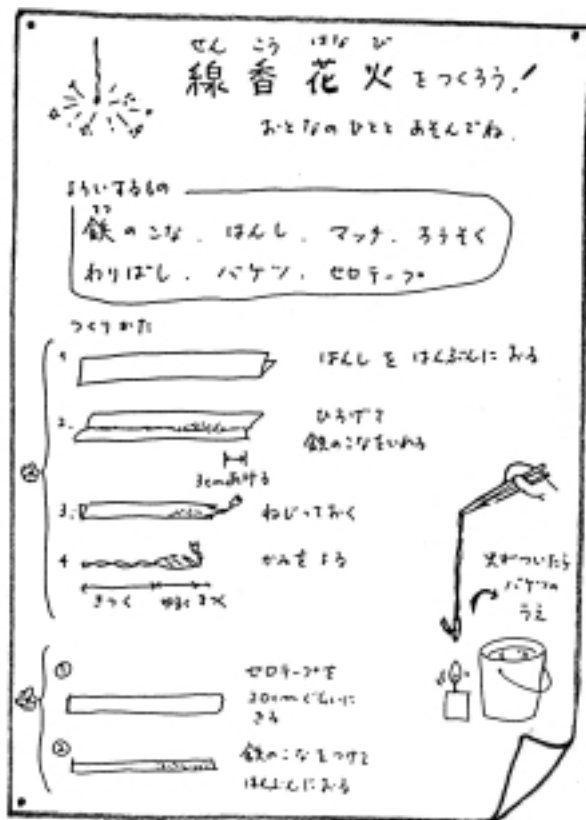 せんこうはなび
線香花火をつくろう!
おとなのひとと あそんでね.
よういするもの
てつ
鉄のこな、はんし、マッチ、ろうそく
わりばし、バケツ、セロテープ
つくりかた
1. はんしをはんぶんにおる
2. ひろげて
鉄のこなをいれる
3cmあける
3. ねじっておく
4 かみをよる
きつく ゆるく きつく
火がついたら
バケツの
うえ
① セロテープを
20cmぐらいに
きる
② 鉄のこなをつけて
はんぶんにおる